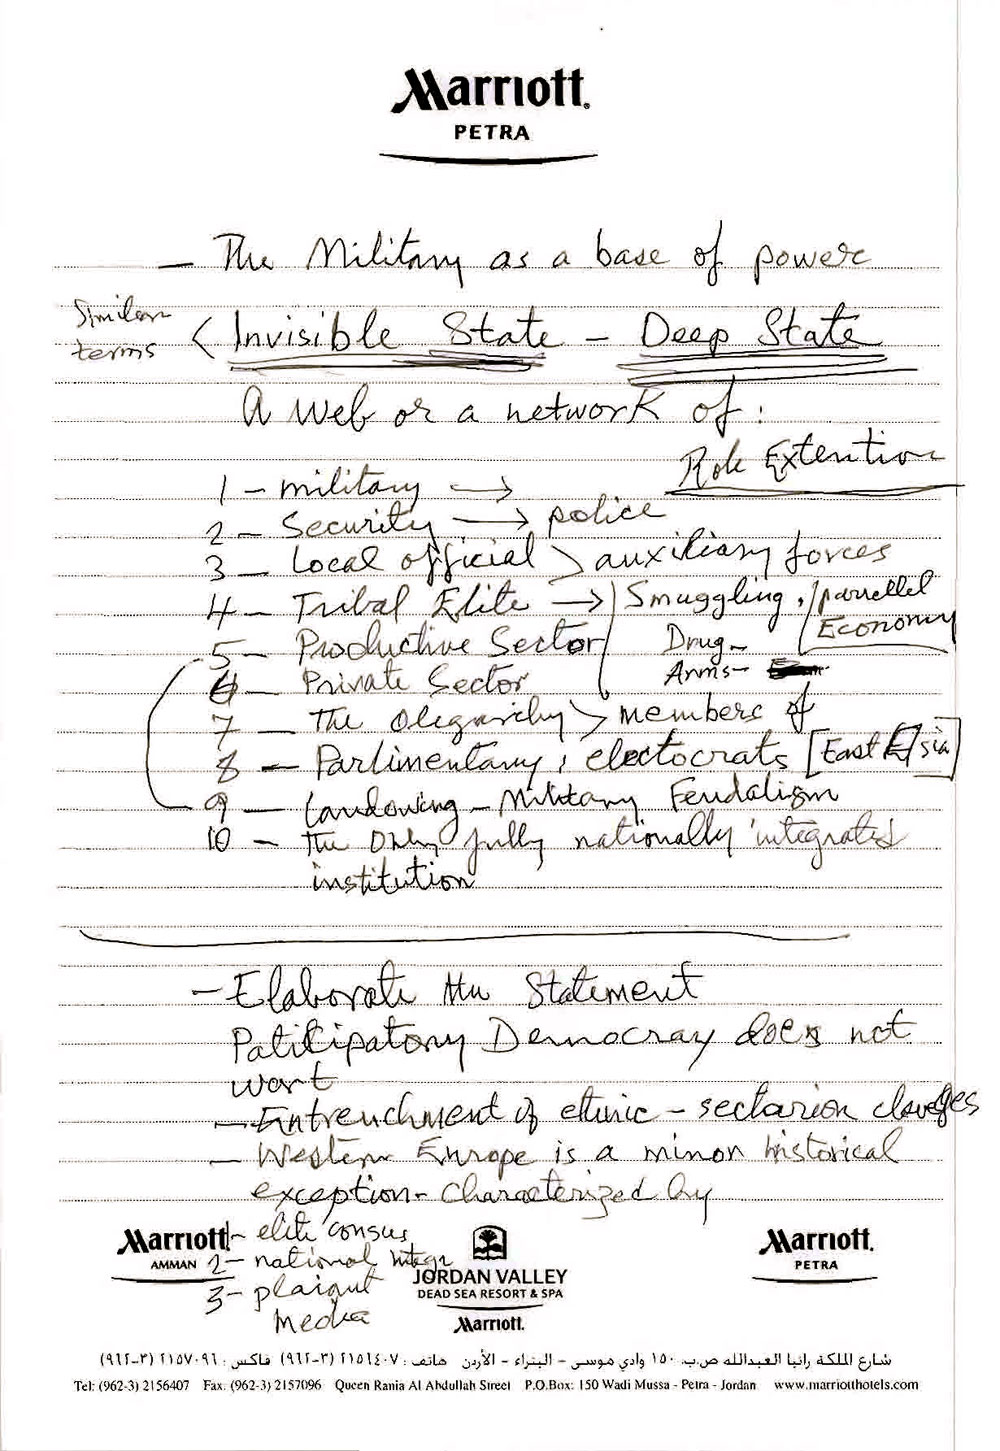 Marriott.
PETRA
– The Military as a base of power
Similar terms < Invisible State – Deep State
A web or a network of :
Role Extention
1 – military →
2 – Security → police
3 – Local official > auxiliary forces
4 – Tribal Elite → Smuggling, / parrellel Economy
5 – Productive Sector Drug –
6 – Private Sector Arms –
7 – The Olegarchy > members of
8 – Parlimentary, electocrats [East Asia]
9 – Landowing – Military Feudalism
10 – The Only fully nationally integrated
institution
– Elaborate the Statement
Paticipatory Democray does not
wort
– Entrenchment of ethnic – sectarion clevges
– Western Europe is a minor historical
exception – characterized by
1 – elite consus
2 – national integr
3 – plaiant
Media
Marriott
AMMAN
JORDAN VALLEY
DEAD SEA RESORT & SPA
Marriott.
Marriott.
PETRA
شارع الملكة رانيا العبدالله ص.ب. ١٥٠ وادي موسى – البتراء – الأردن هاتف : ٢١٥٦٤٠٧ (٣-٩٦٢) فاكس : ٢١٥٧٠٩٦ (٣-٩٦٢)
Tel: (962-3) 2156407 Fax: (962-3) 2157096 Queen Rania Al Abdullah Street P.O.Box: 150 Wadi Mussa - Petra - Jordan www.marriotthotels.com